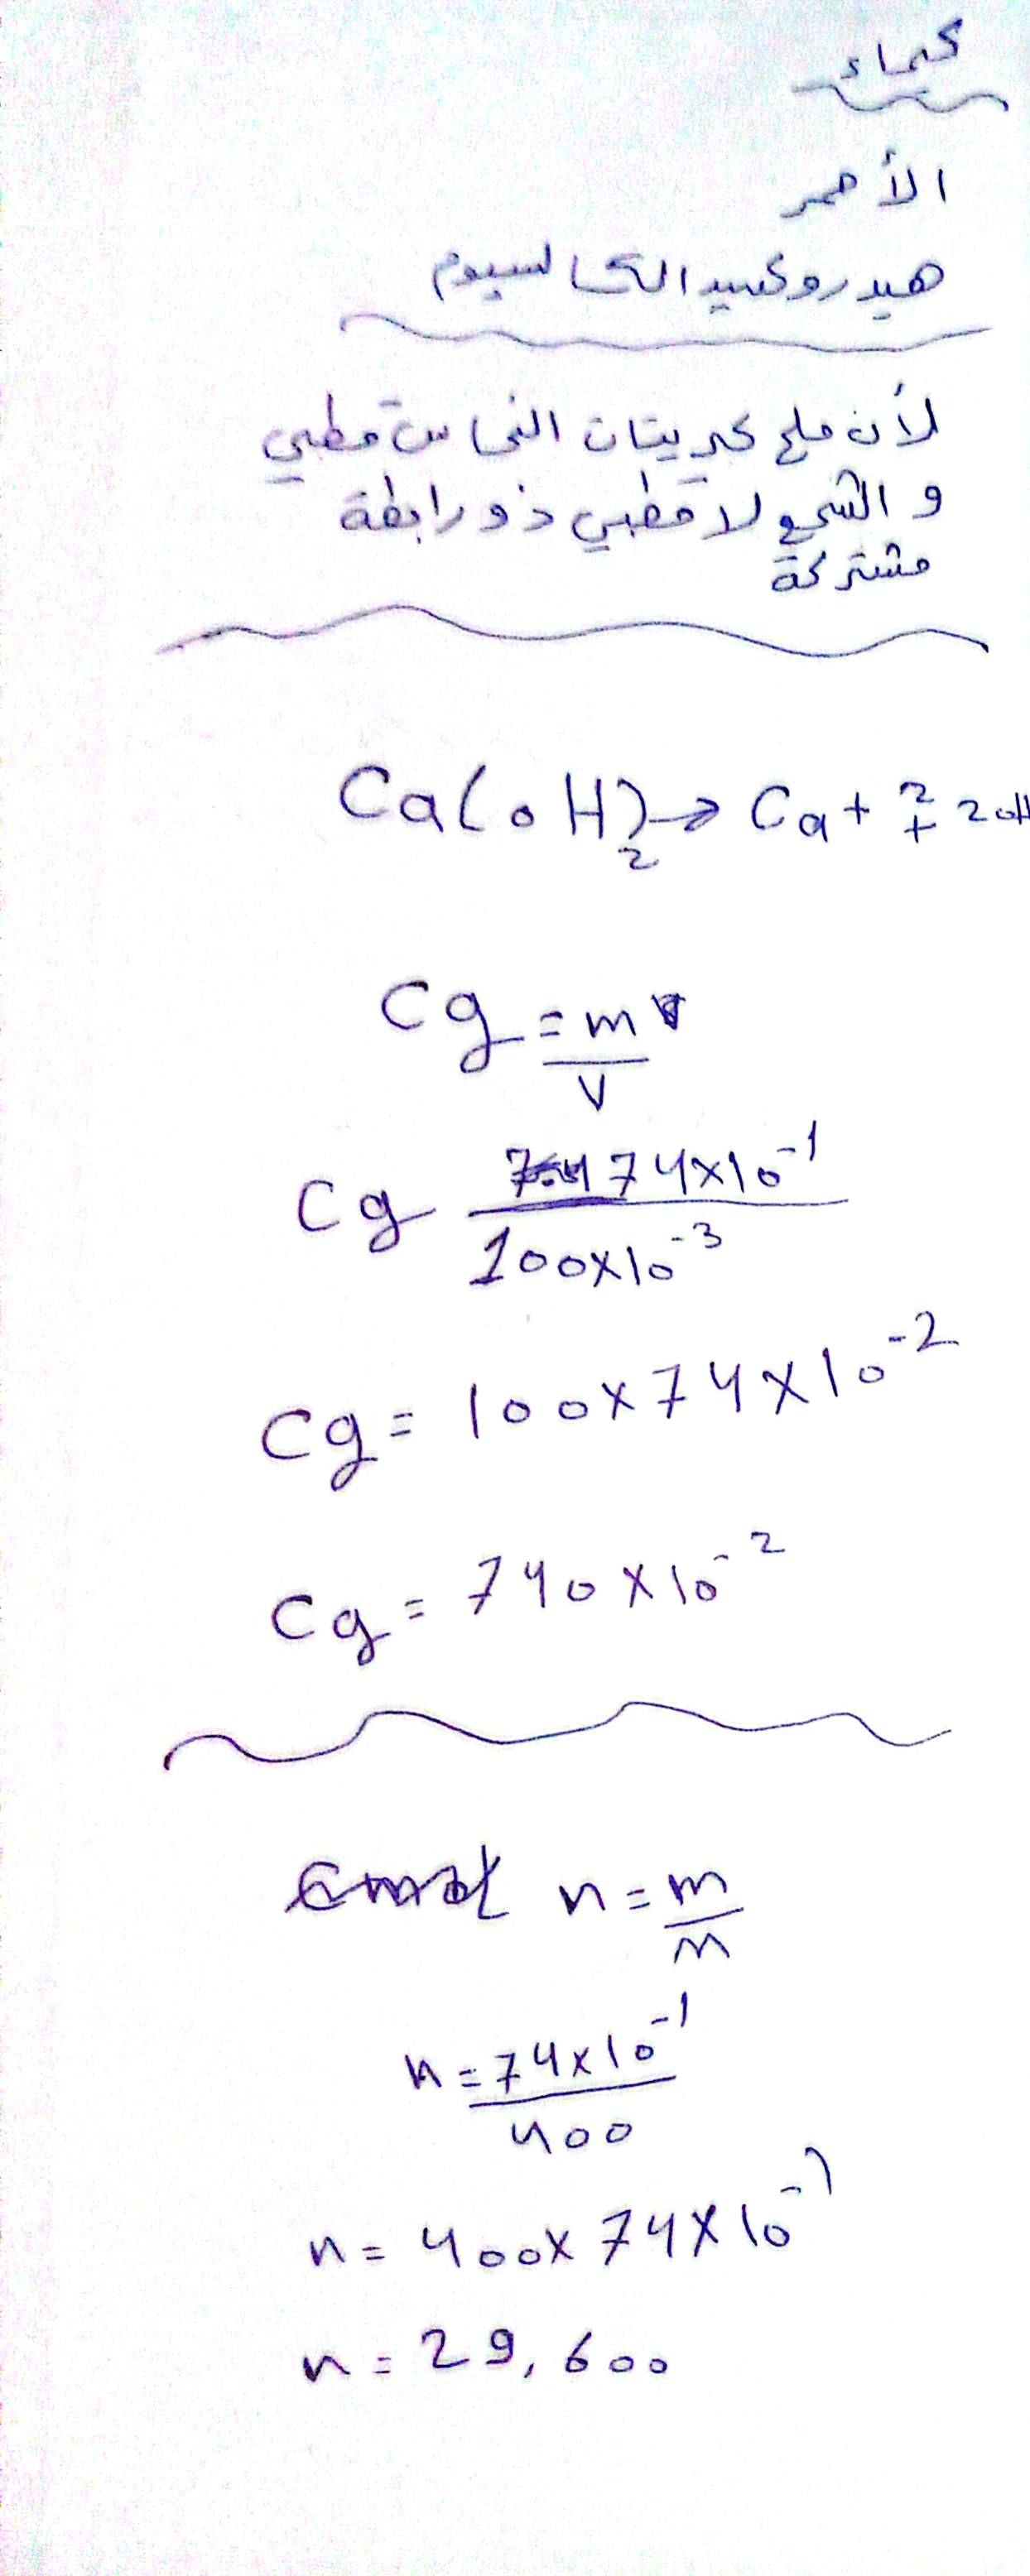 كيماء
الأحمر
هيدروكسيد الكالسيوم
لأن ملح كبريتات النحاس قطبي
و الشمع لا قطبي ذو رابطة
مشتركة
Ca(OH)₂ → Ca + 2+ 2OH
Cg = m/V
Cg 74×10⁻¹/100×10⁻³
Cg = 100×74×10⁻²
Cg = 740×10⁻²
n = m/m
n = 74×10⁻¹/400
n = 400×74×10⁻¹
n = 29,600